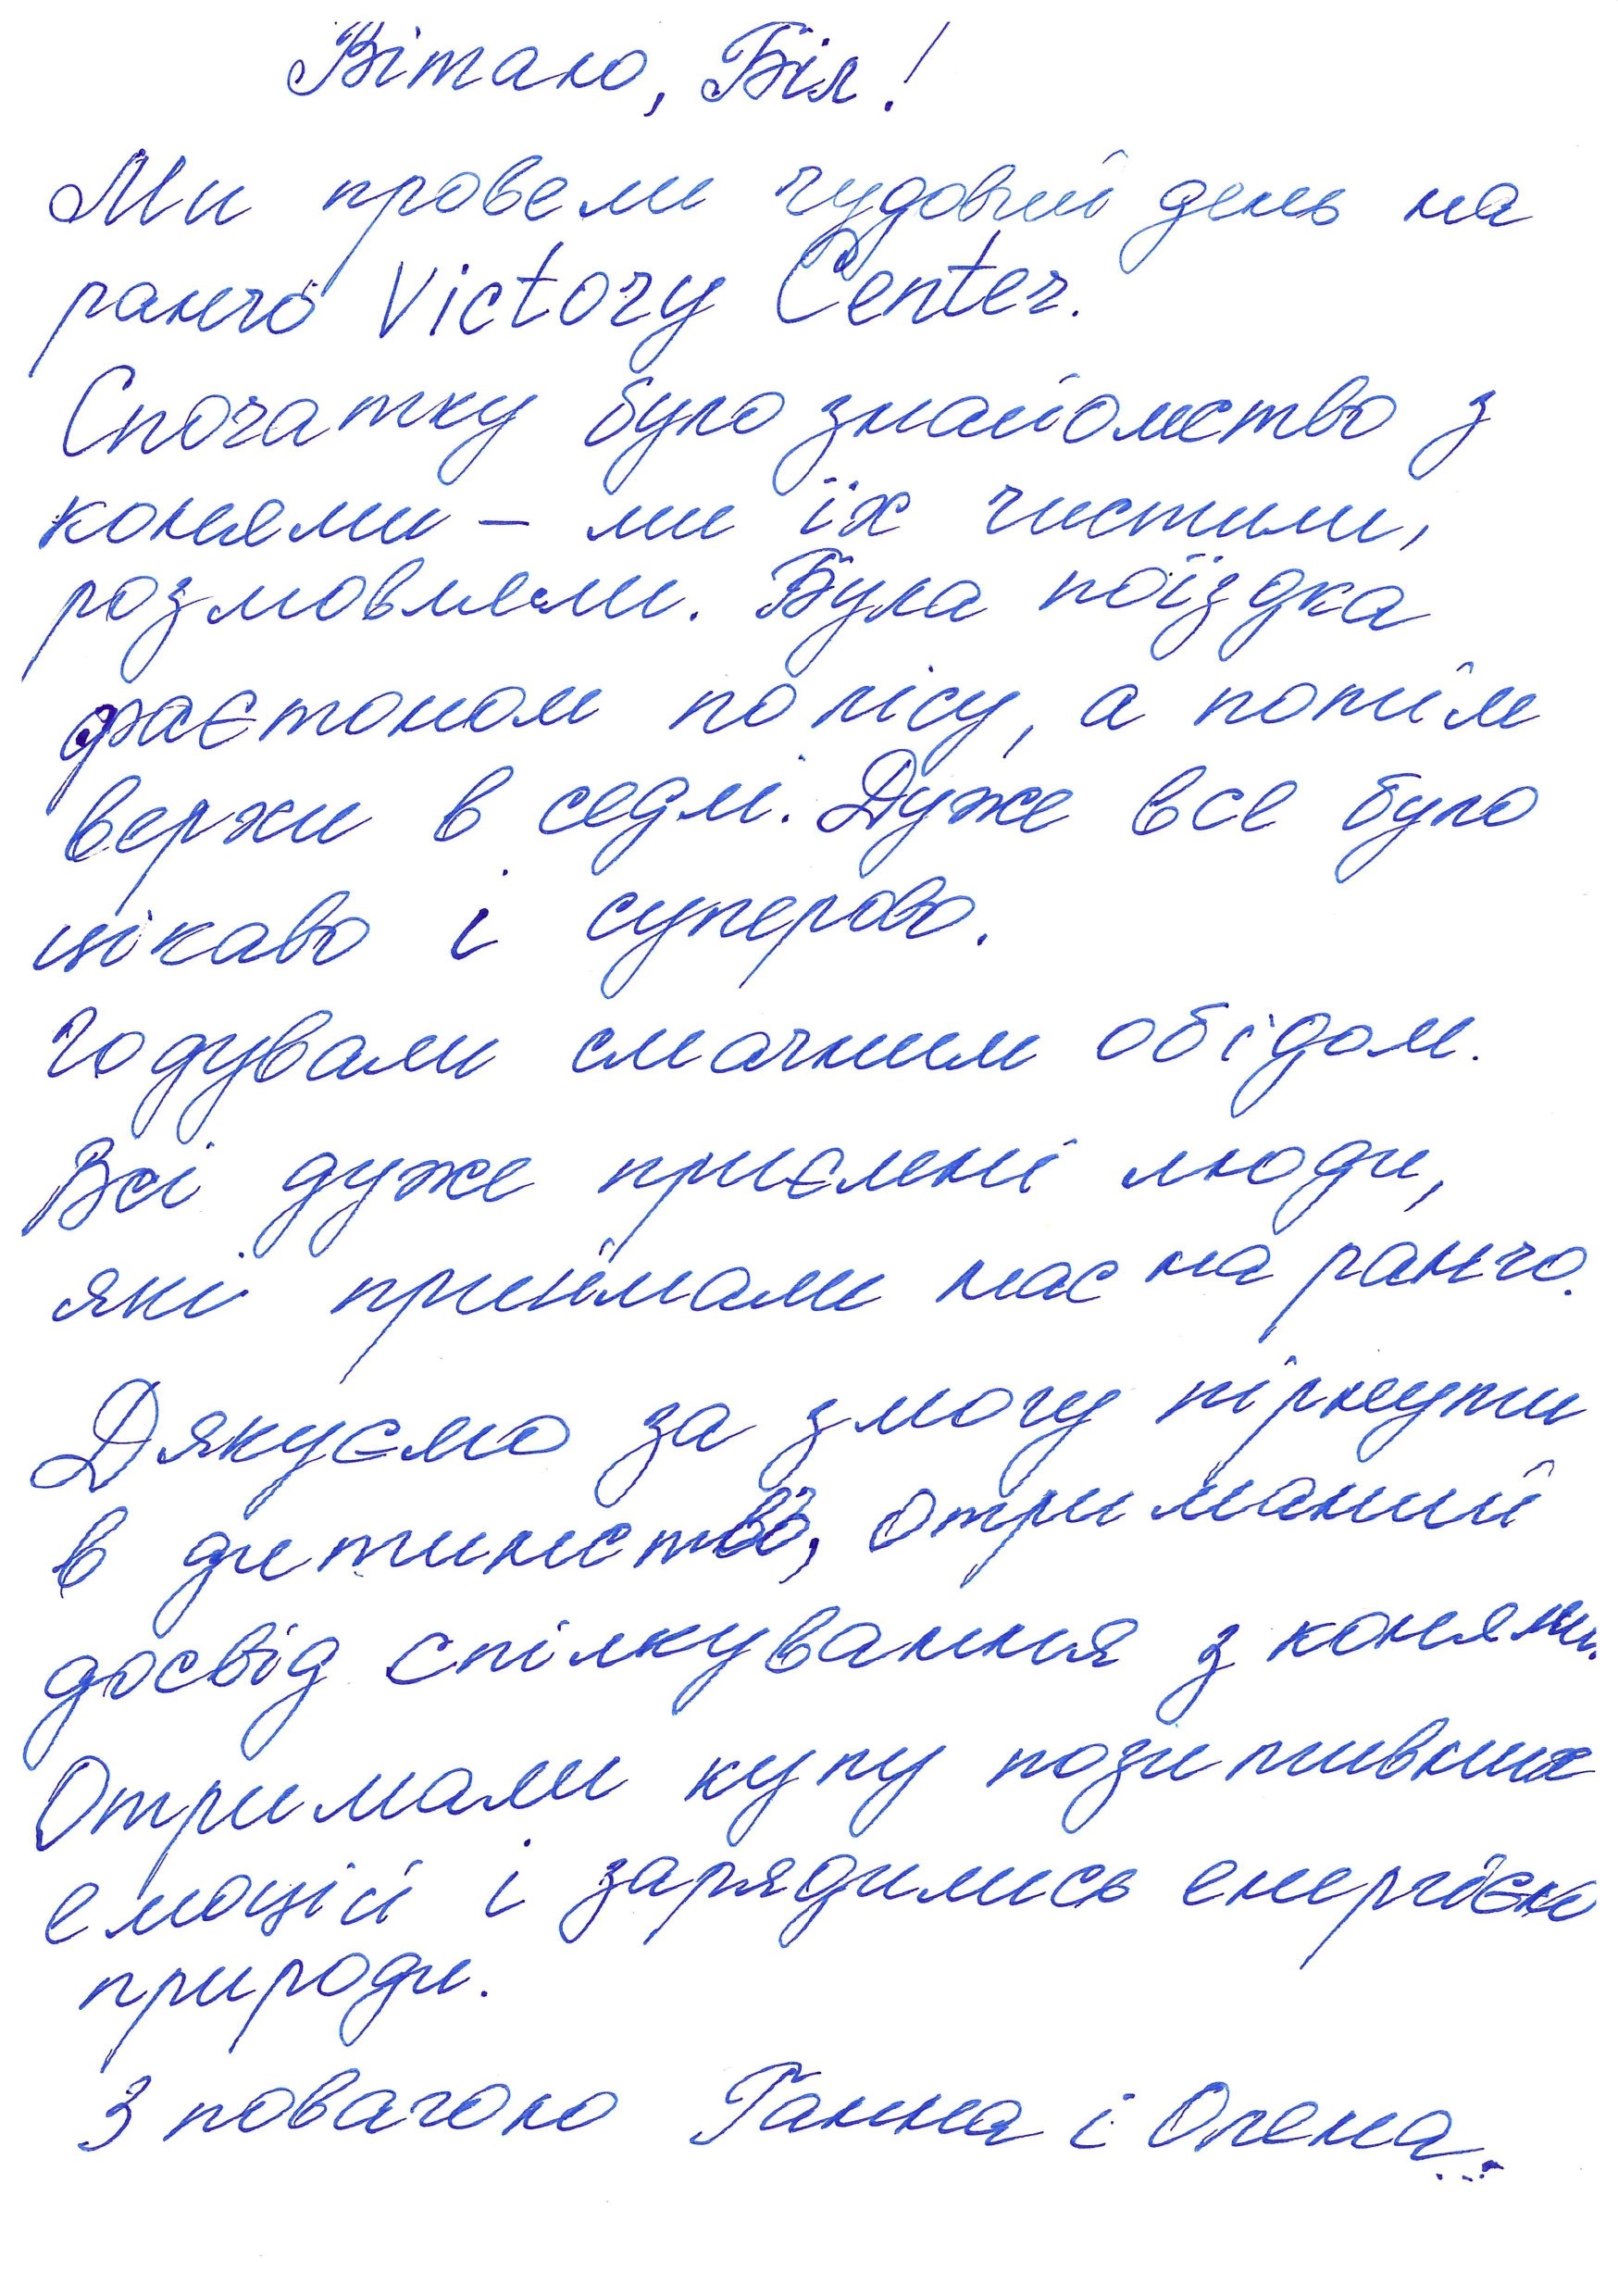 Вітаю, Біл!
Ми провели чудовий день на
ранчо Victory Center.
Спочатку було знайомство з
конями – ми їх чистили,
розмовляли. Була поїздка
фаєтоном по лісу, а потім
верхи в седлі. Дуже все було
цікаво і суперово.
Годували смачним обідом.
Всі дуже приємні люди,
які приймали нас на ранчо.
Дякуємо за змогу пірнути
в дитинство, отриманий
досвід спілкування з конями.
Отримали купу позитивних
емоцій і зарядились енергією
природи.
З повагою Ганна і Олена.